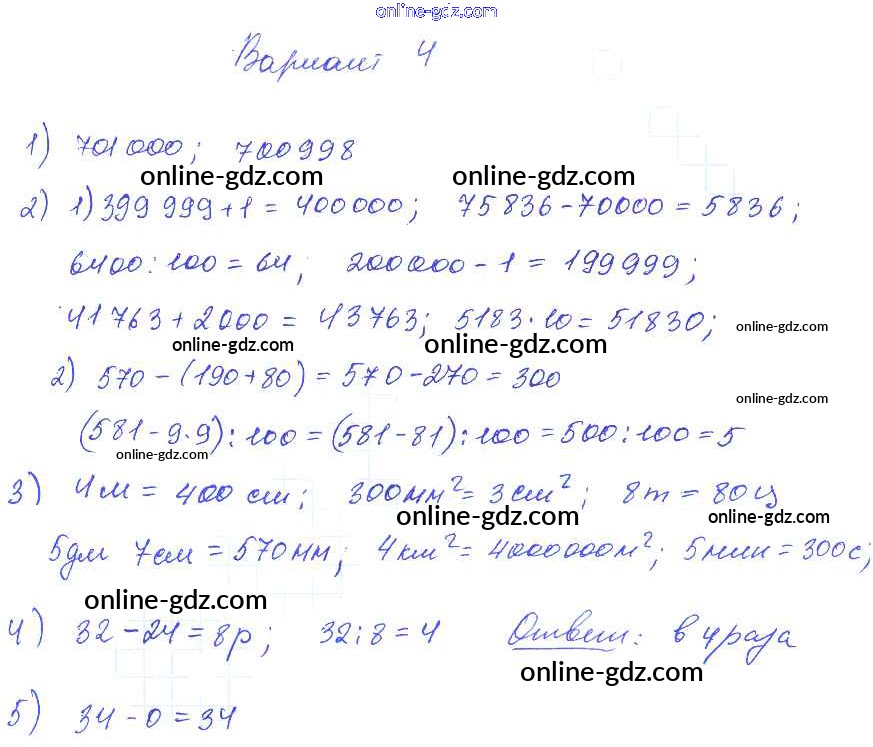 online-gdz.com
Вариант 4
1) 701000; 700998
online-gdz.com online-gdz.com
2) 1) 399 999+1 = 400000; 75836-70000 = 5836;
6400:100 = 64; 200000-1 = 199999;
41763+2000 = 43763; 5183·10 = 51830; online-gdz.com
online-gdz.com online-gdz.com
2) 570-(190+80) = 570-270 = 300
online-gdz.com
(581-9·9):100 = (581-81):100 = 500:100 = 5
online-gdz.com
3) 4м = 400 см; 300мм² = 3см²; 8т = 80ц
online-gdz.com online-gdz.com
5дм 7см = 570мм; 4км² = 4000000м²; 5мин = 300с;
online-gdz.com
4) 32-24 = 8р; 32:8 = 4 Ответ: в 4 раза
online-gdz.com
5) 34-0 = 34